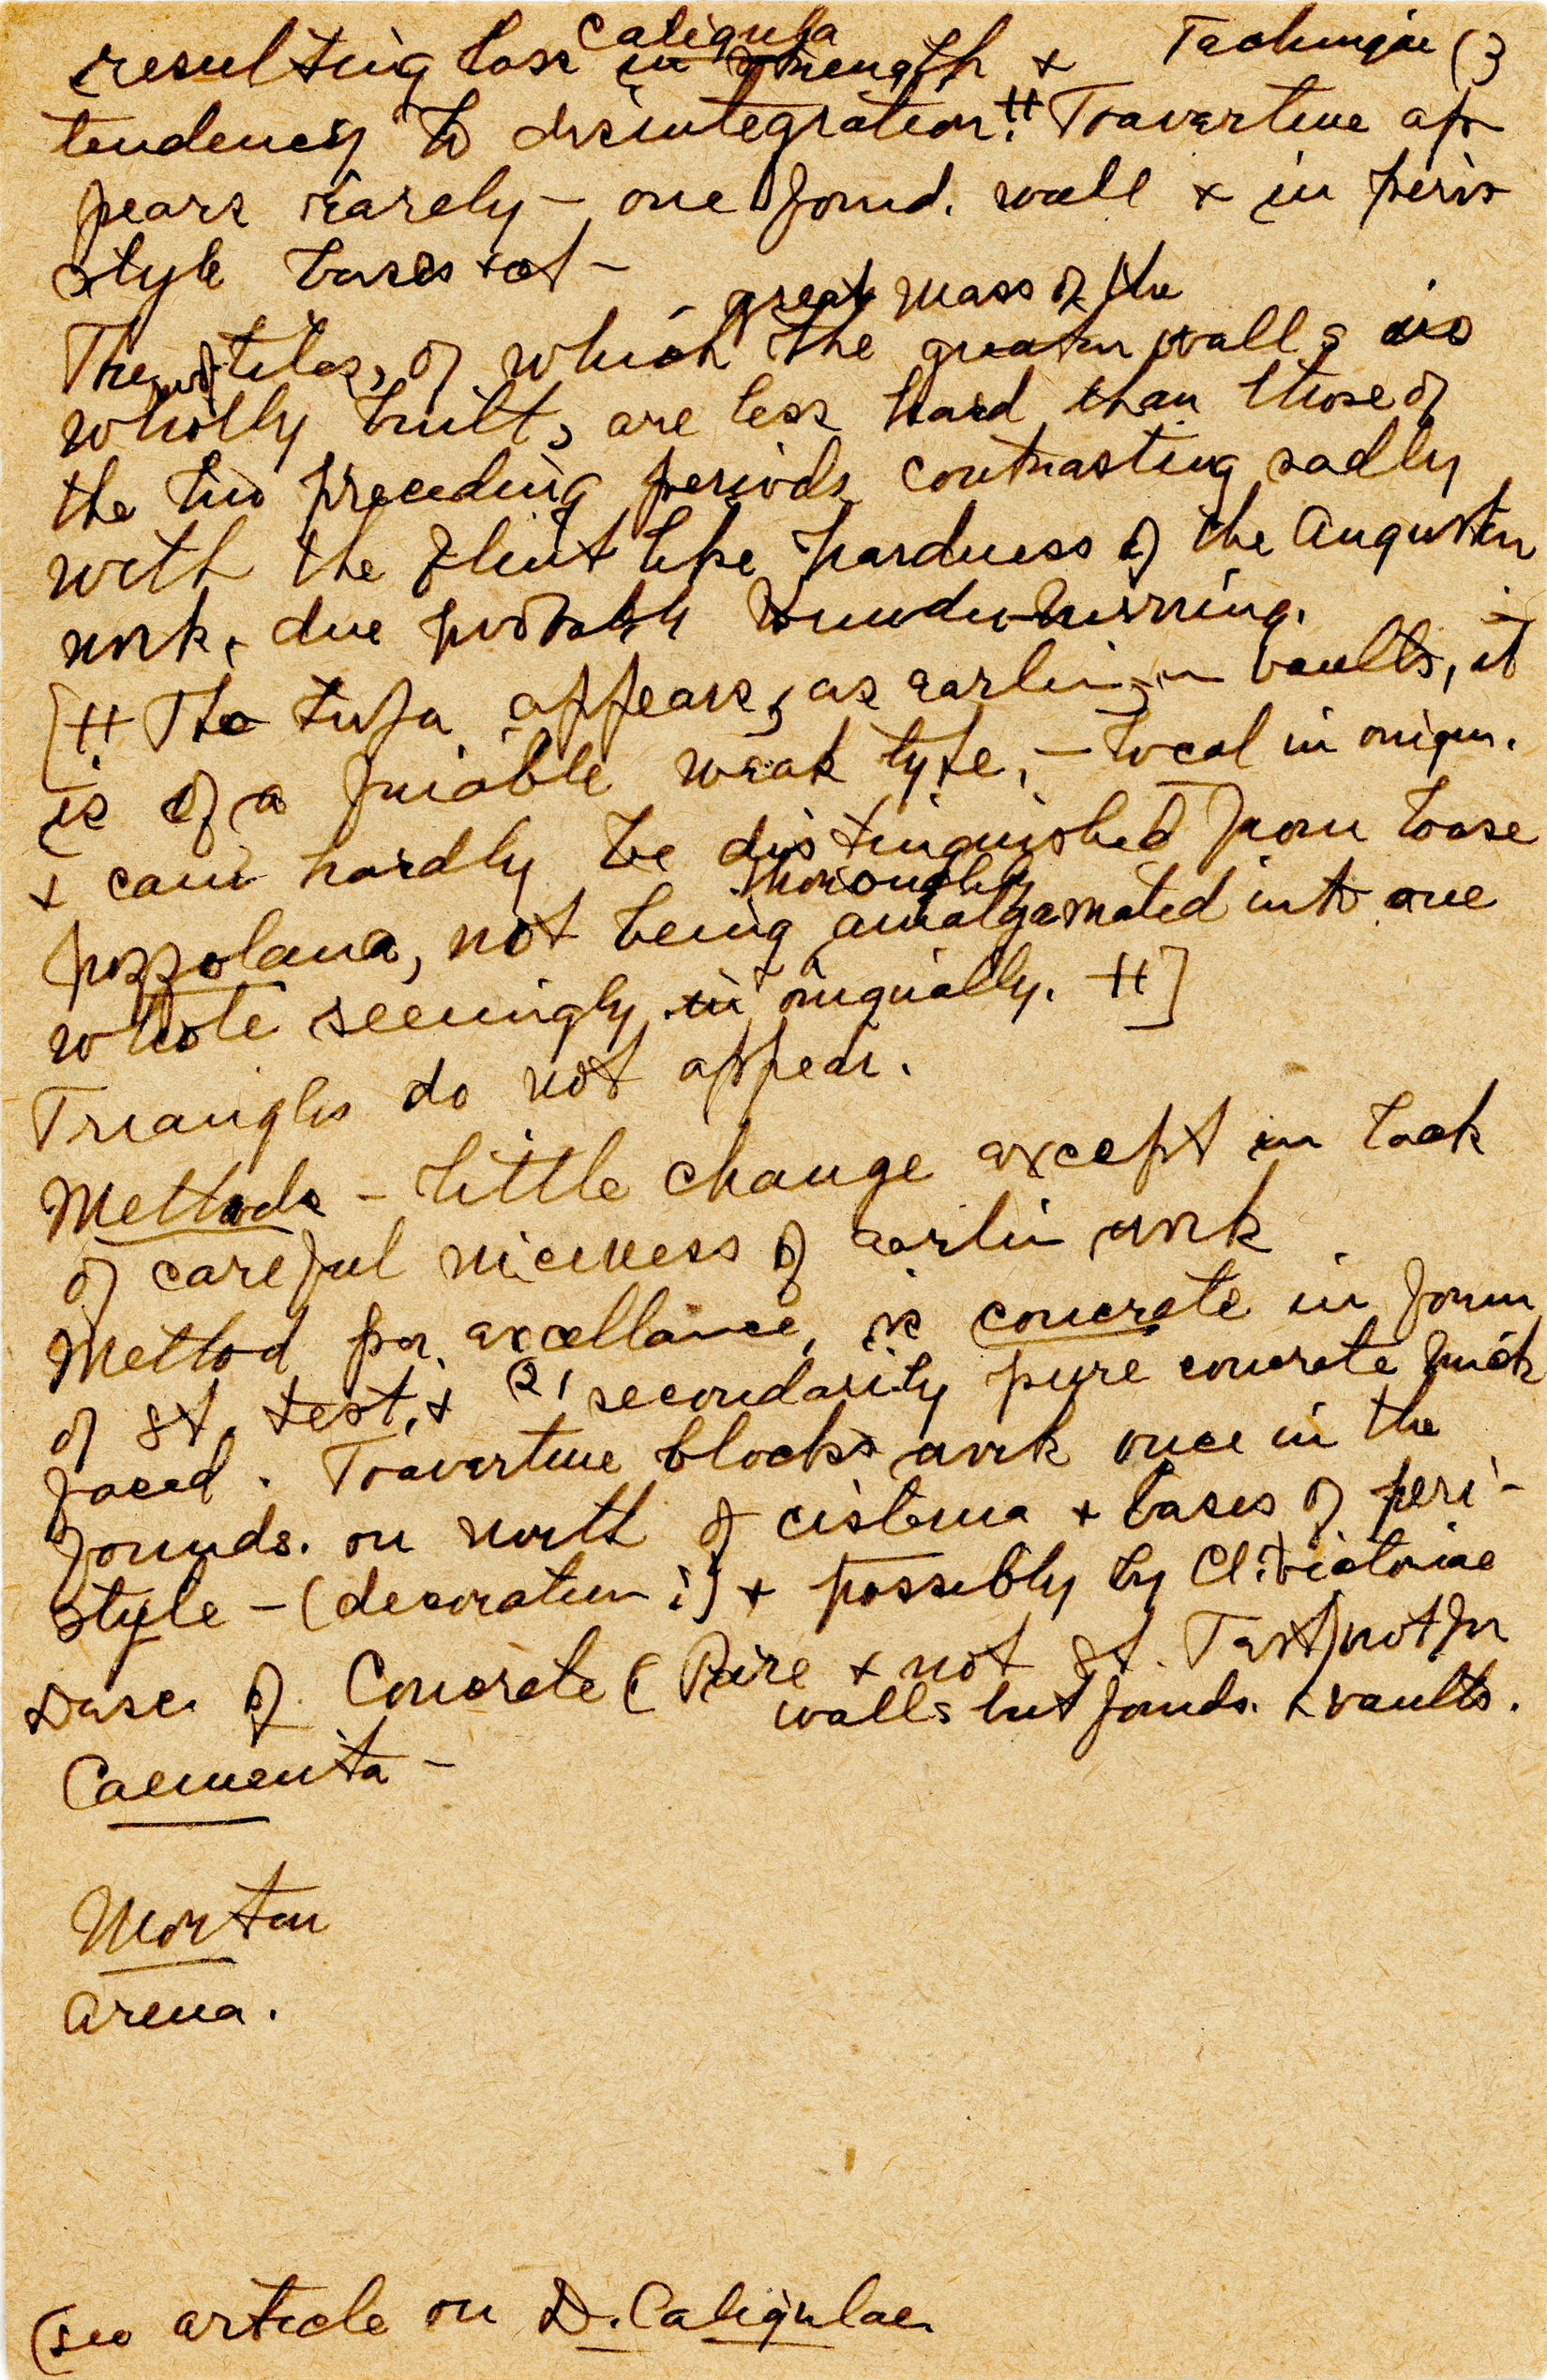 Caligula Technique (3
resulting loss in strength +
tendency to disintegration.‡ Travertine ap-
pears rarely – one found. wall + in peri-
style bases
great mass of the
The roof tiles, of which the greater walls are
wholly built, are less hard than those of
the two preceding periods contrasting sadly
with the flint like hardness of the Augustan
work, due probably to under-burning.
[‡ The tufa appears, as earlier, in vaults, it
is of a friable weak type, – local in origin.
+ can hardly be distinguished from loose
thoroughly
pozzolana, not being amalgamated into one
whole seemingly in originally. ‡]
Triangles do not appear.
Methods – Little change except in lack
of careful niceness of earlier work
Method par excellance, is concrete in form
of st. test. + (2) secondarily pure concrete brick
faced. Travertine blocks work once in the
founds. on north of cisterna + bases of peri-
style – (decoration?) + possibly by Cl. Victoriae
Uses of Concrete (Pure + not st. Test) not for
walls but founds. + vaults.
Caementa –
Mortar
Arena.
(see article on D. Caligulae